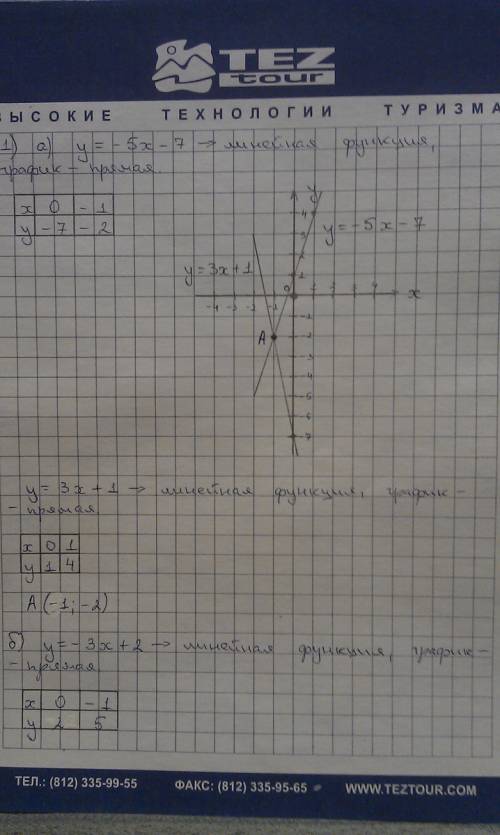 TEZ
tour
ВЫСОКИЕ ТЕХНОЛОГИИ ТУРИЗМА
1) а) y = -5x - 7 → линейная функция,
график - прямая.
x 0 -1
y -7 -2
y
4
3
2
1
y = -5x - 7
y = 3x + 1
0
-4 -3 -2 -1
1 2 3 4
x
-1
A
-2
-3
-4
-5
-6
-7
y = 3x + 1 → линейная функция, график -
- прямая
x 0 1
y 1 4
A (-1; -2)
б) y = -3x + 2 → линейная функция, график -
- прямая
x 0 -1
y 2 5
ТЕЛ.: (812) 335-99-55 ФАКС: (812) 335-95-65 WWW.TEZTOUR.COM